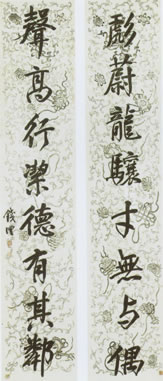 彪蔚龍驤才無与偶
聲高行絜德有其鄰